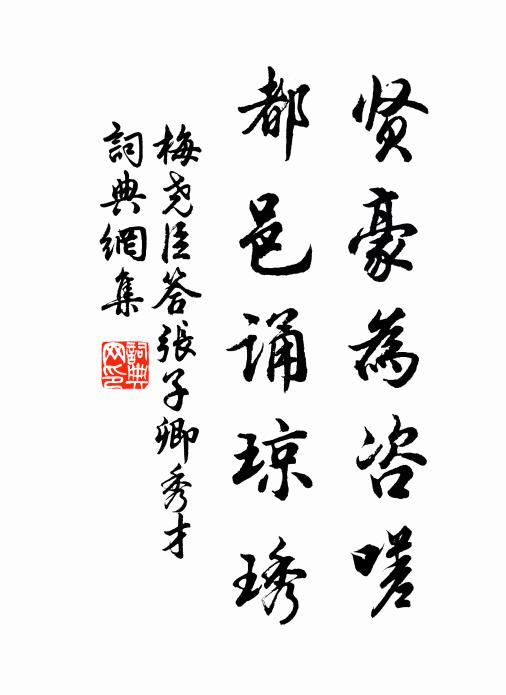 贤豪為咨嗟
都邑诵琼琇
梅尧臣答張子卿秀才
詞典網集
詞典网印